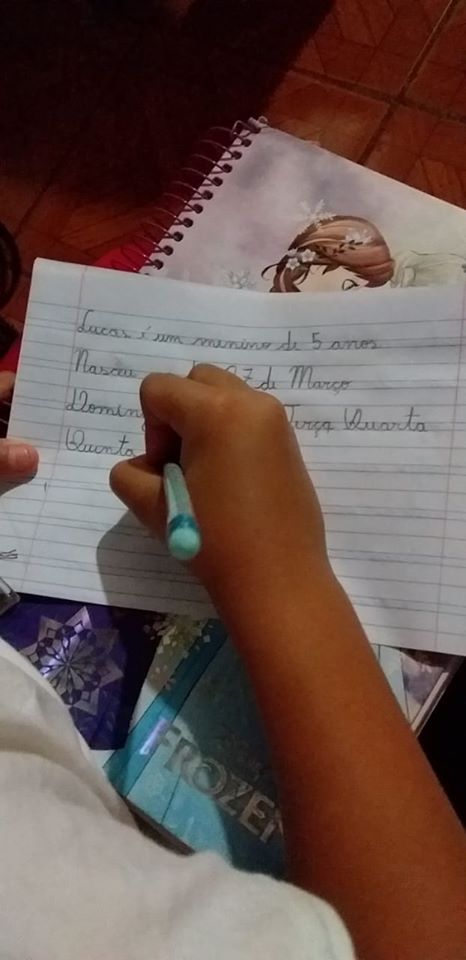 Lucas é um menino de 5 anos
Nasceu 27 de Março
Terça Quarta
Quinta
FROZEN